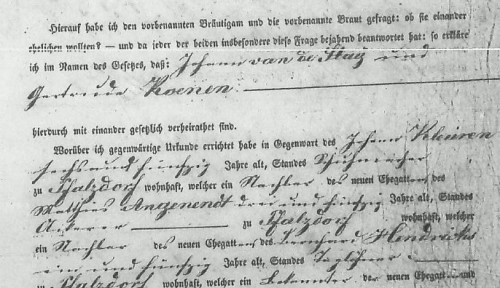 Hierauf habe ich den vorbenannten Bräutigam und die vorbenannte Braut gefragt: ob sie einander
ehelichen wollten? — und da jeder der beiden insbesondere diese Frage bejahend beantwortet hat: so erkläre
ich im Namen des Gesetzes, daß: Johann van de und
Gertrude Koenen
hierdurch mit einander gesetzlich verheirathet sind.
Worüber ich gegenwärtige Urkunde errichtet habe in Gegenwart des Johann
sechs und fünfzig Jahre alt, Standes Schuhmacher
zu Pfalzdorf wohnhaft, welcher ein Nachbar des neuen Ehegatten, des
Mathias Angenendt drei und fünfzig Jahre alt, Standes
Ackerer zu Pfalzdorf wohnhaft, welcher
ein Nachbar des neuen Ehegatten, des Bernhard Hendricks
ein und fünfzig Jahre alt, Standes Taglöhner
zu Pfalzdorf wohnhaft, welcher ein Bekannter der neuen Ehegatten und